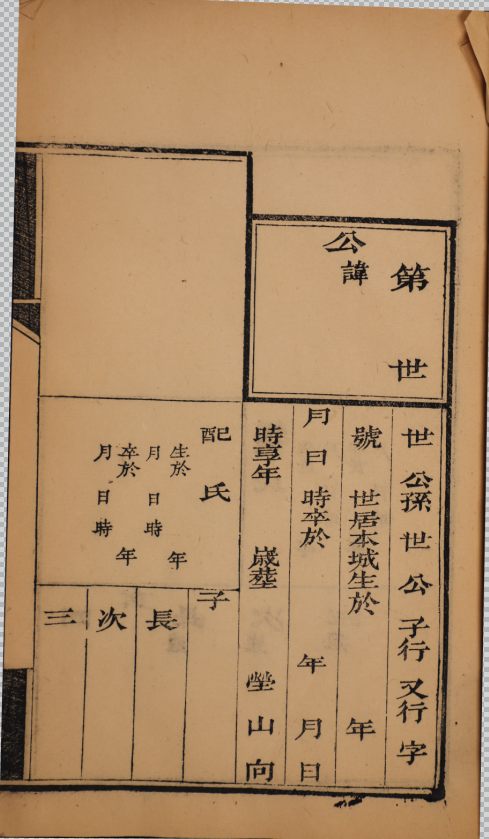 第世
公諱
世公孫世公子行又行字
號世居本城生於年
月日時卒於年月日
時享年歲塟塋山向
配氏
生於年
月日時
卒於年
月日時
子
長
次
三